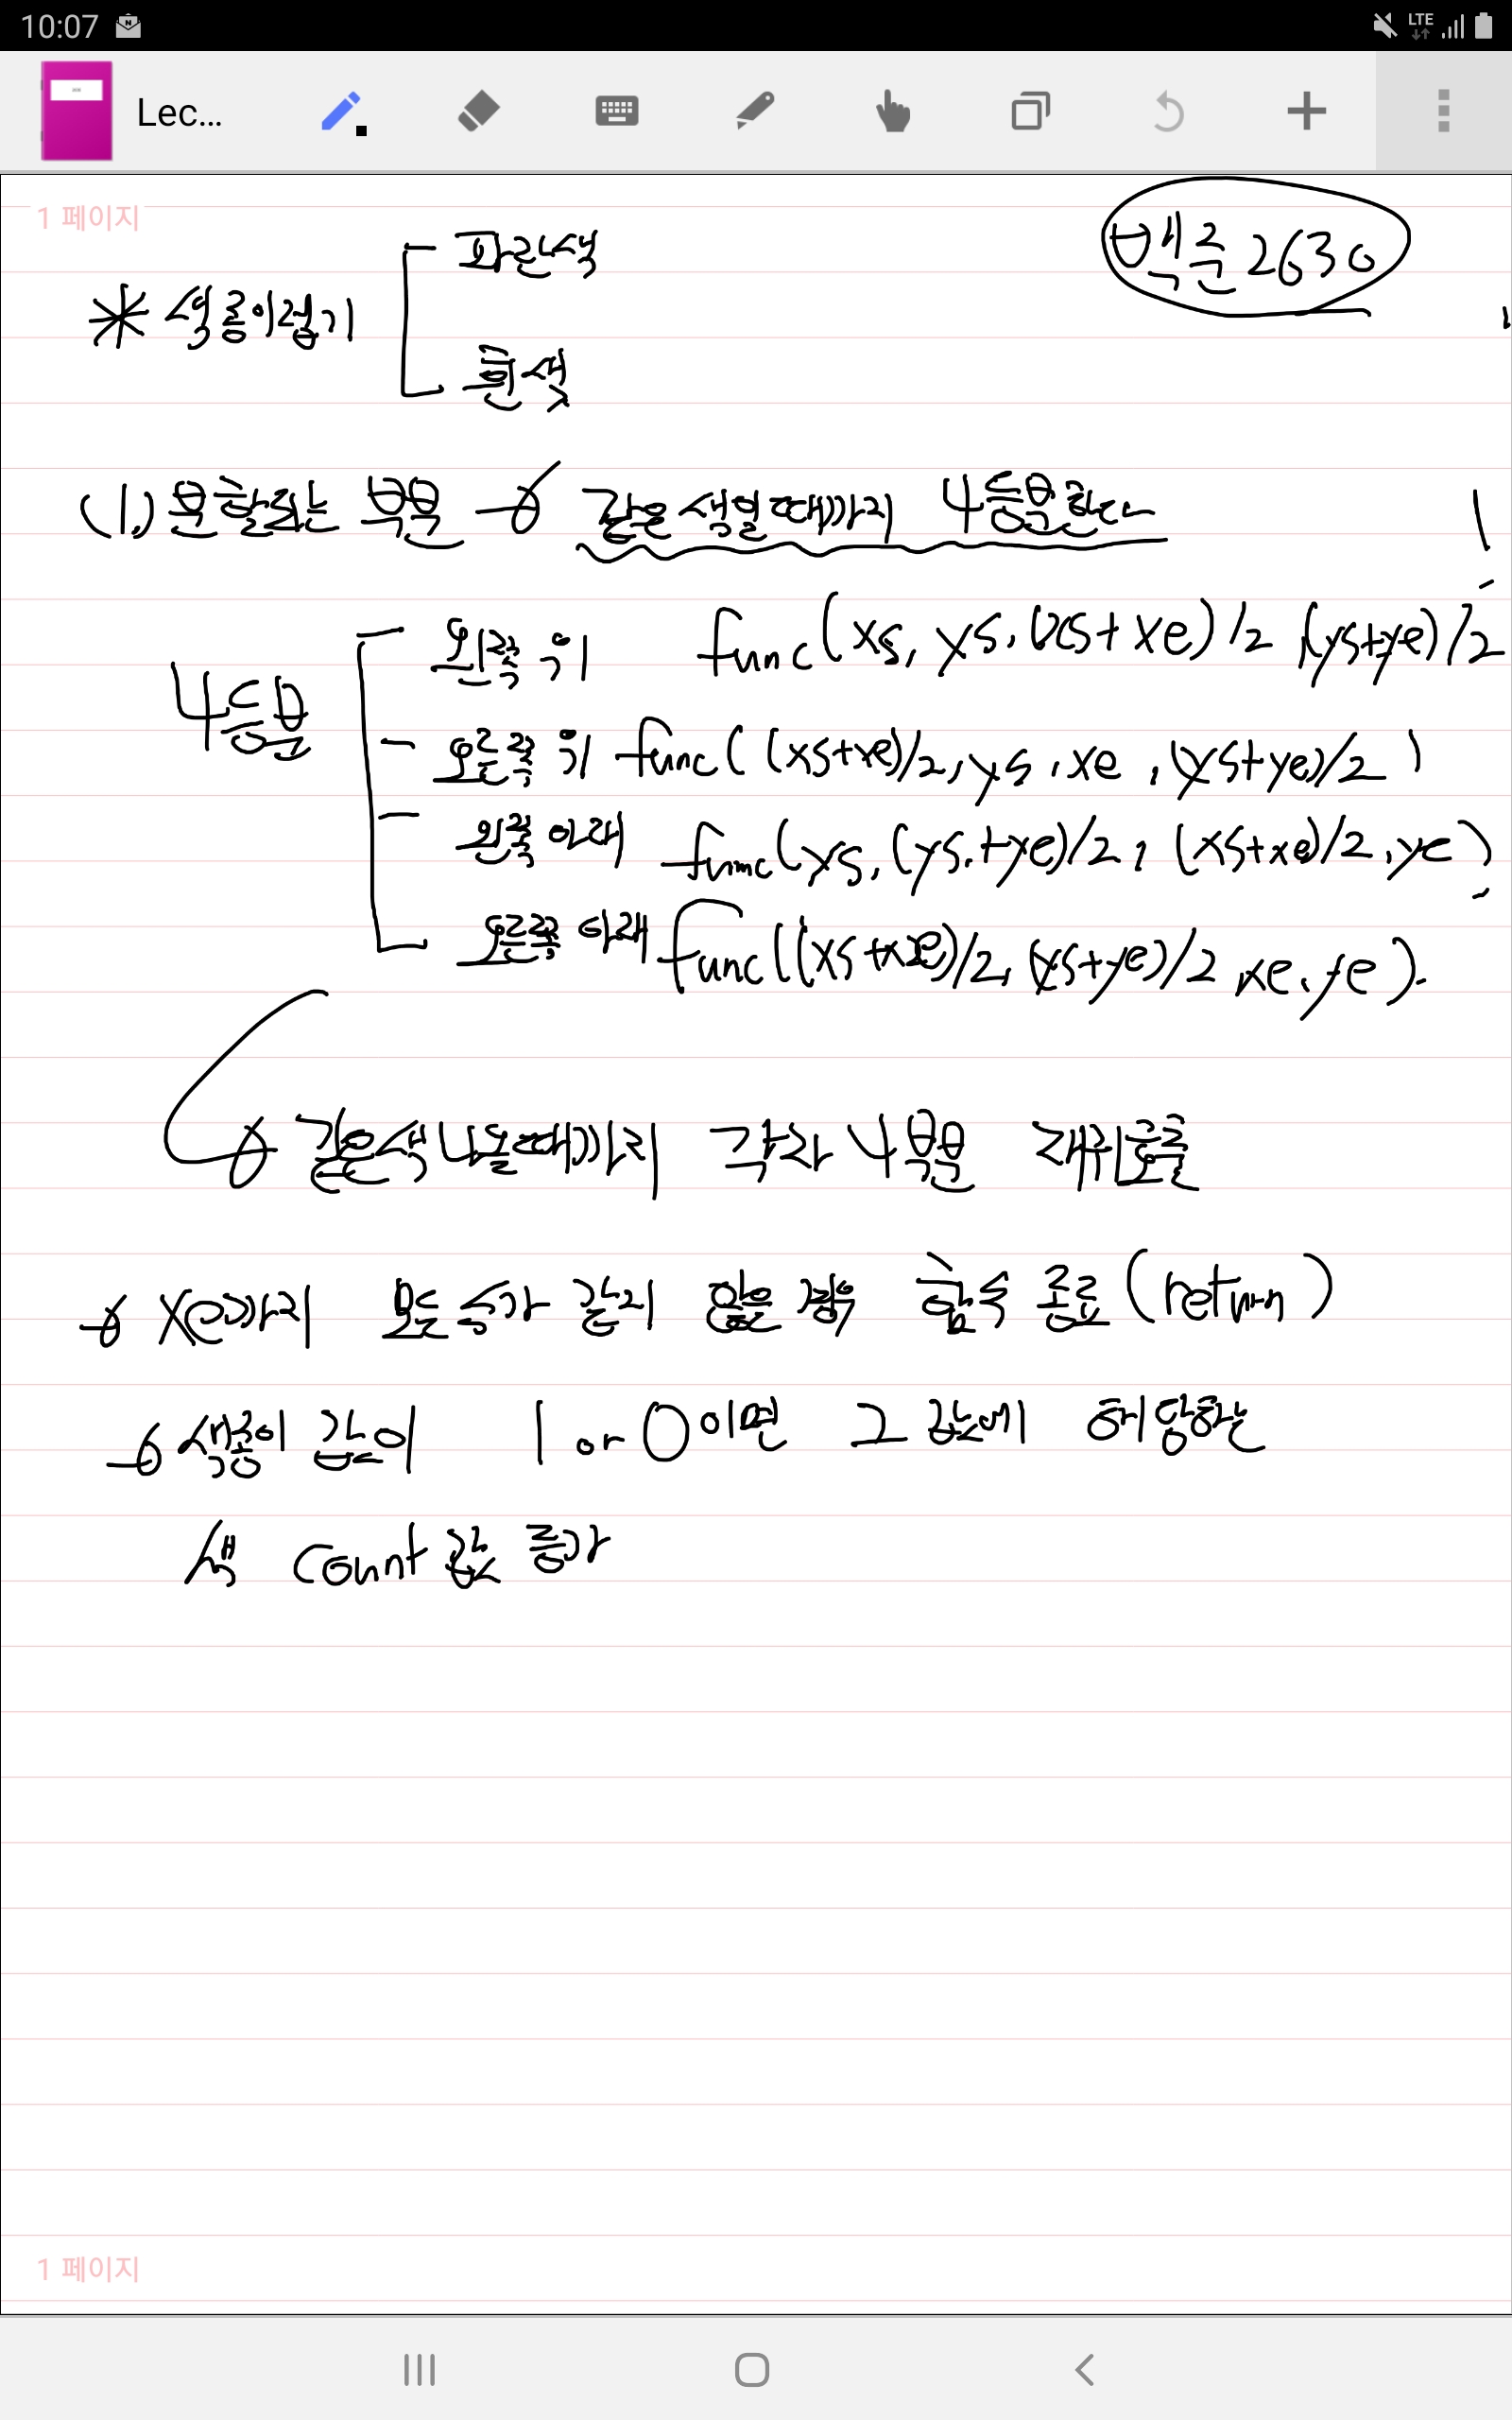 10:07
LTE
Lec...
1 페이지
백준 2630
* 색종이접기
파란색
흰색
(1.) 분할되는 부분 → 같은 색일때까지 4등분한다
4등분
왼쪽 위 func(xs, ys, (xs+xe)/2, (ys+ye)/2)
오른쪽 위 func((xs+xe)/2, ys, xe, (ys+ye)/2)
왼쪽 아래 func(xs, (ys+ye)/2, (xs+xe)/2, ye)
오른쪽 아래 func((xs+xe)/2, (ys+ye)/2 xe, ye).
→ 같은색 나올때까지 각각 4분면 재귀호출
모든 숫자 같이 함수 종료 (return)
→ 색종이 값이 1 or 0이면 그 값에 해당하는
색 count값 증가
1 페이지